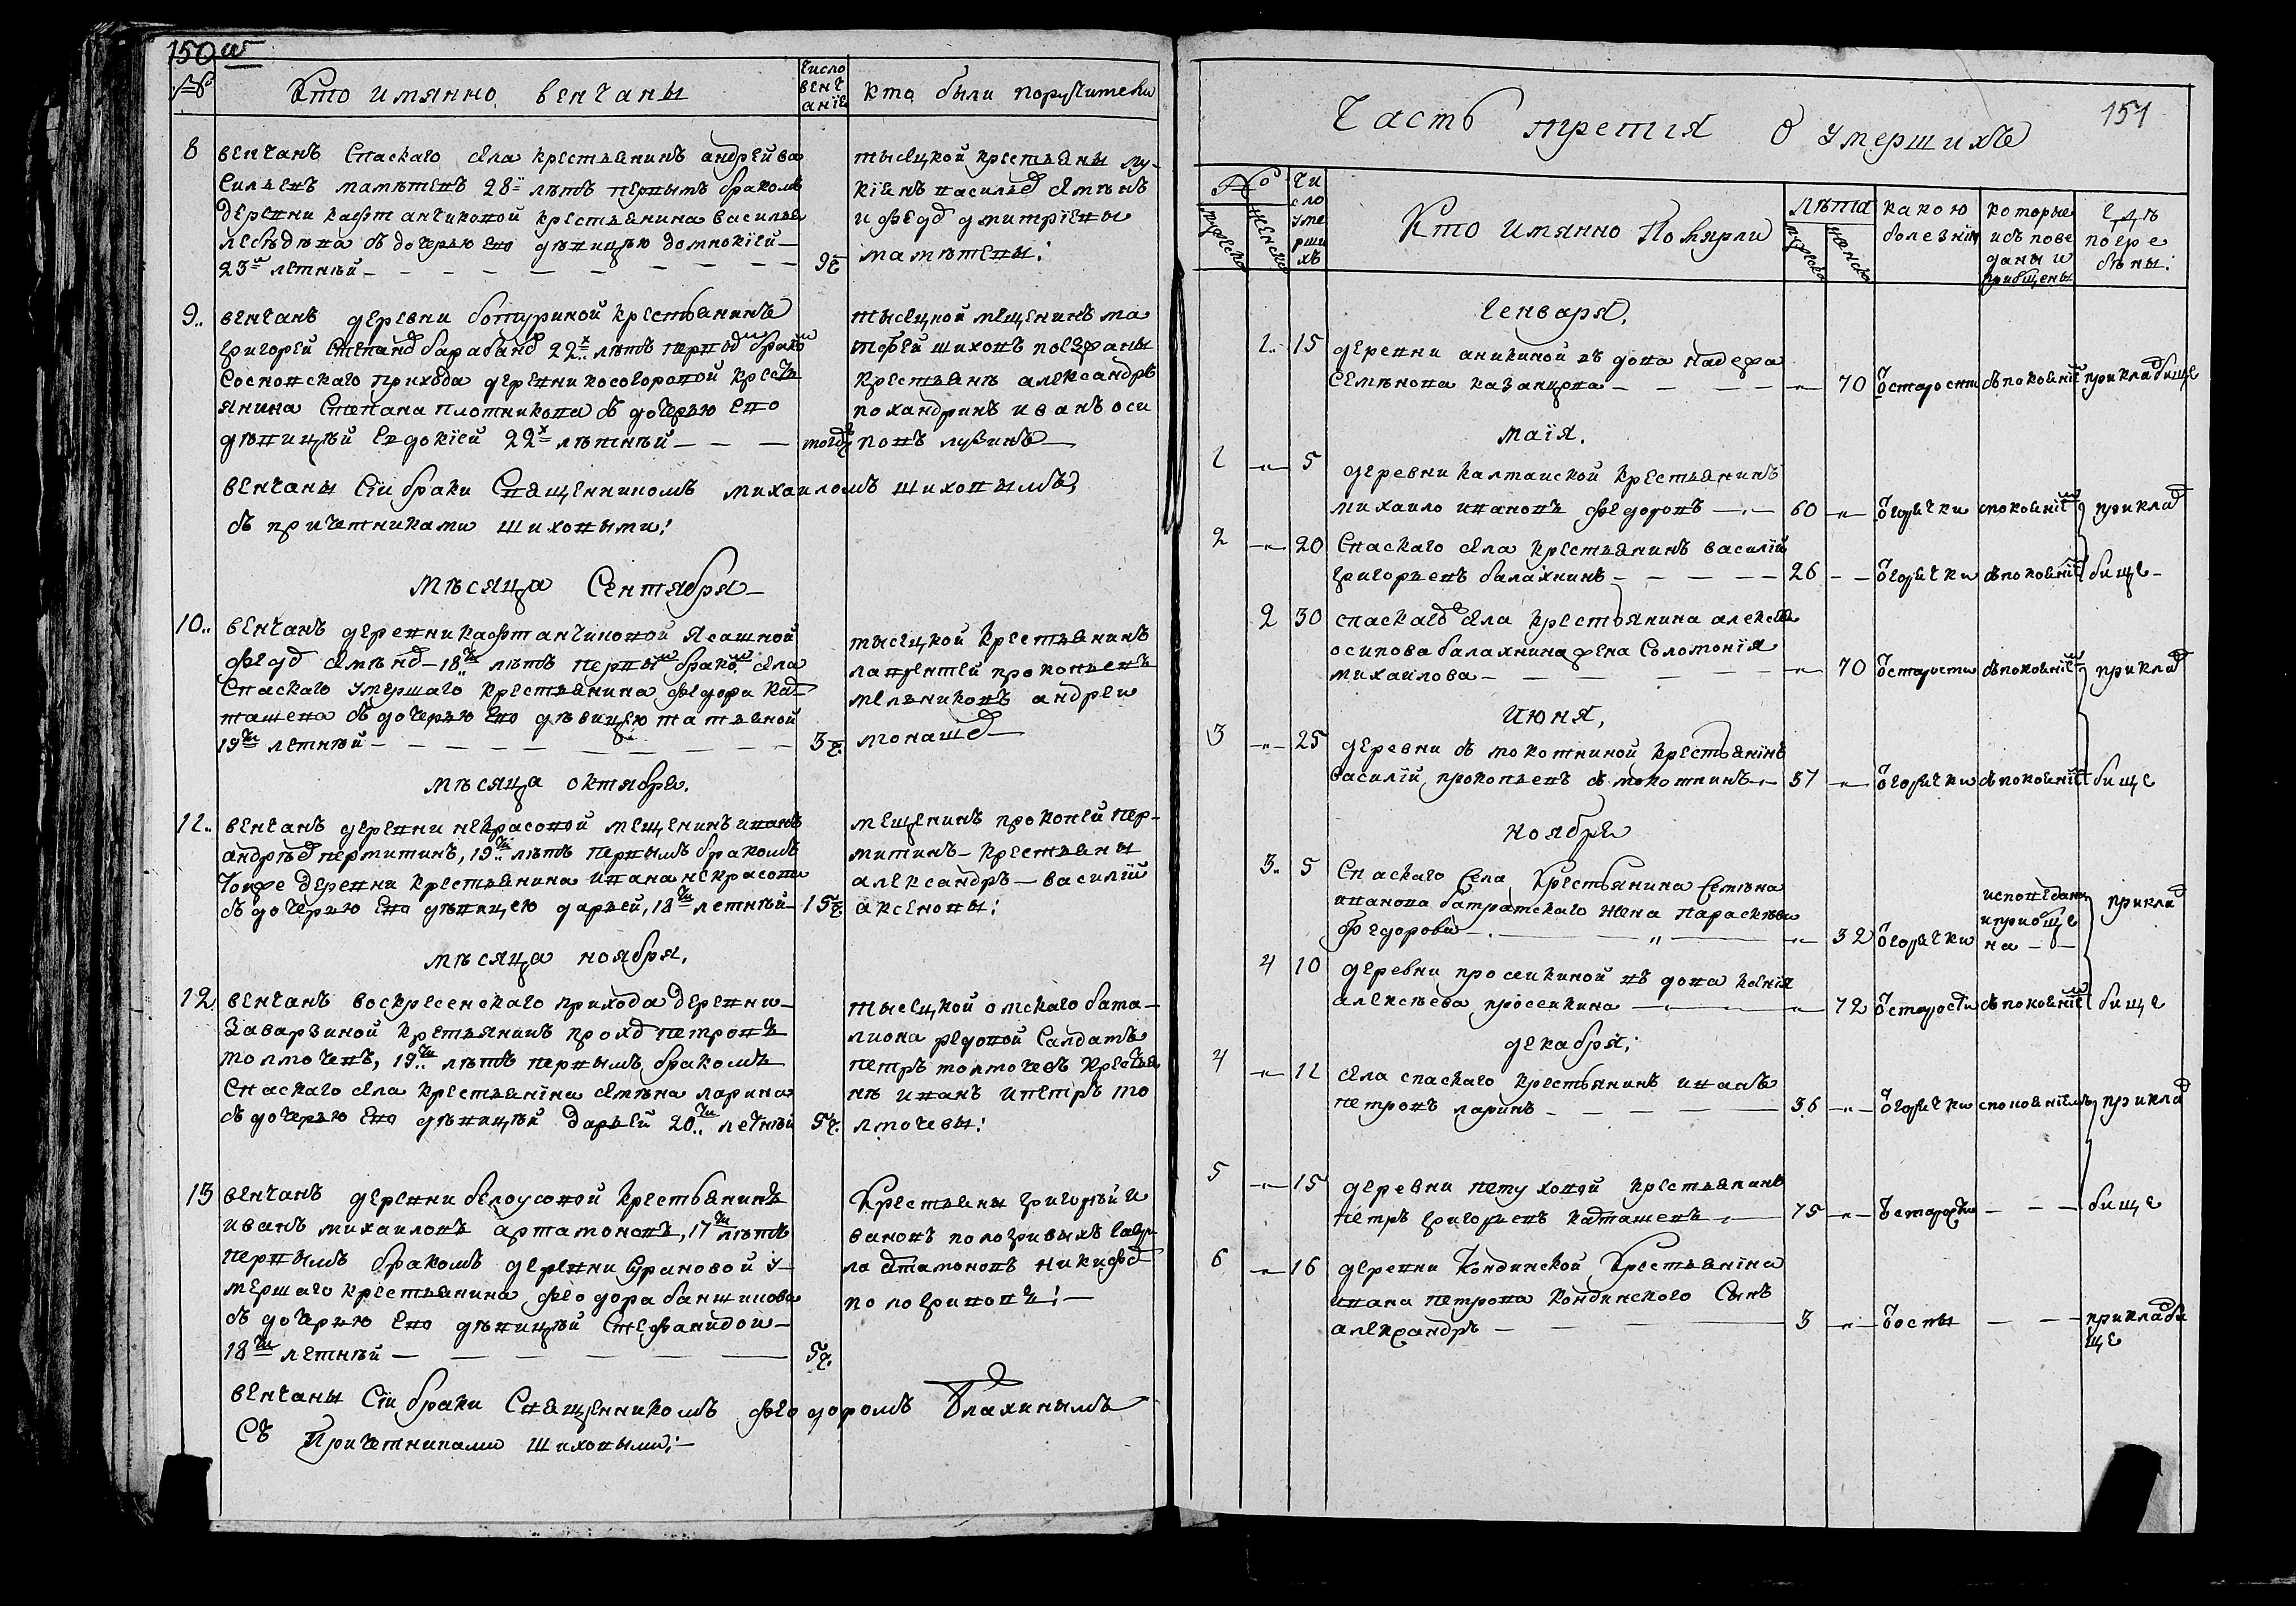 150 об
№
Кто имянно венчаны
число венчанїе
кто были поручители
8
венчанъ Спаскаго села крестьянинъ андрей ва
сильевъ маметевъ 28 летъ первымъ бракомъ
деревни кафтанчиковой крестьянина василья
съ дочерью ево девицею домнокїей
23 летней
9 ч
тысецкой крестьяны лу
кїянъ василье семенъ
и федо дмитрїевы
маметевы:
9..
венчанъ деревни ботуриной крестьянинъ
григорей степано барабано 22х летъ первы брако
сосновскаго прихода деревни косогоровой кресть
янина Степана плотникова съ дочерью ево
девицей евдокїей 22х летней
тогоже
тысецкой мещенинъ ма
тфей шиховъ поезжаны
крестьянъ александръ
похандринъ иванъ оси
повъ лузинъ
венчаны Сїи браки Священникомъ михаиломъ шиховымъ,
съ причетниками шиховыми:
месяца Сентября
10..
венчанъ деревни кафтанчиковой ясашной
федо семено 18 летъ первы брако села
Спаскаго умершаго крестьянина федора ка
ташева съ дочерью ево девицею татьяной
19ти летней
3 ч.
тысецкой крестьянинъ
лаврентей прокопьевъ
мельниковъ андреи
монаше
месяца октября.
11..
венчанъ деревни некрасовой мещенинъ иванъ
андрее пермитинъ, 19ти летъ первымъ бракомъ
тоиже деревни крестьянина ивана некрасова
съ дочерью ево девицею дарьей, 18ти летней
15 ч
мещенинъ прокопей пер
митинъ крестьяны
александръ василїй
аксеновы:
месяца ноября.
12
венчанъ воскресенскаго прихода деревни
Заварзиной крестьянинъ прохо петровъ
толмочевъ, 19ти летъ первымъ бракомъ
Спаскаго села крестьянина семена ларина
съ дочерью ево девицей дарьей 20ти летней
5 ч.
тысецкой омскаго бата
лиона редовой Салдатъ
петръ толмочевъ крестья
не иванъ и петръ то
лмочевы:
13
венчанъ деревни белоусовой крестьянинъ
иванъ михаиловъ артамоновъ, 17ти летъ
первымъ бракомъ деревни Еурановой у
мершаго крестьянина феодора банщикова
съ дочерью ево девицей Стефанидой
18ти летней
5 ч.
Крестьяны григорей и
вановъ пологривыхъ гаври
ла атамоновъ никифо
пологривовъ:
венчаны Сїи браки Священникомъ феодоромъ Блахинымъ
Съ Причетниками шиховыми:
151
Часть третїя о умершихъ
№
мужеска
женска
число умершихъ
Кто имянно Помярли
лета
мужеска
женска
какою болезнїю
которые исповеданы и прибщены
где погребены:
Генваря.
1.. 15
деревни аникиной вдова надежа
Семенова казанцова 70 о старости съ покоянїе при кладбище
маїя.
1 5
деревни калтаиской крестьянинъ
михаило ивановъ федоровъ 60 о горячки с покоянїе при клад
2 20
Спаскаго села крестьянинъ василїй
григорьевъ балахнинъ 26 о горячки съ покоянїе бище
2 30
спаскаго села крестьянина алексея
осипова балахнина жена Соломонїя
михаилова 70 о старости съ покоянїе при клад
июня.
3 25
деревни смокотниной крестьянинъ
василїй прокопьевъ смокотнинъ 37 о горячки съ покоянїе бище
ноября
3.. 5
Спаскаго Села крестьянина Семена
иванова батратскаго жена параскевия
Федорова 32 о горячки исповедана и приобще на при кла
4 10
деревни просекиной вдова ксенїя
алексеева просекина 72 о старости съ покоянїе бище
декабря.
4 11
села спаскаго крестьянинъ иванъ
петровъ ларинъ 36 о горячки с покоянїемъ при клад
5 15
деревни петуховой крестьянинъ
петръ григорьевъ каташевъ 75 о старости бище
6 16
деревни Кондинской Крестьянина
ивана петрова кондинскаго Сынъ
александръ 3 о оспы при кладби
ще